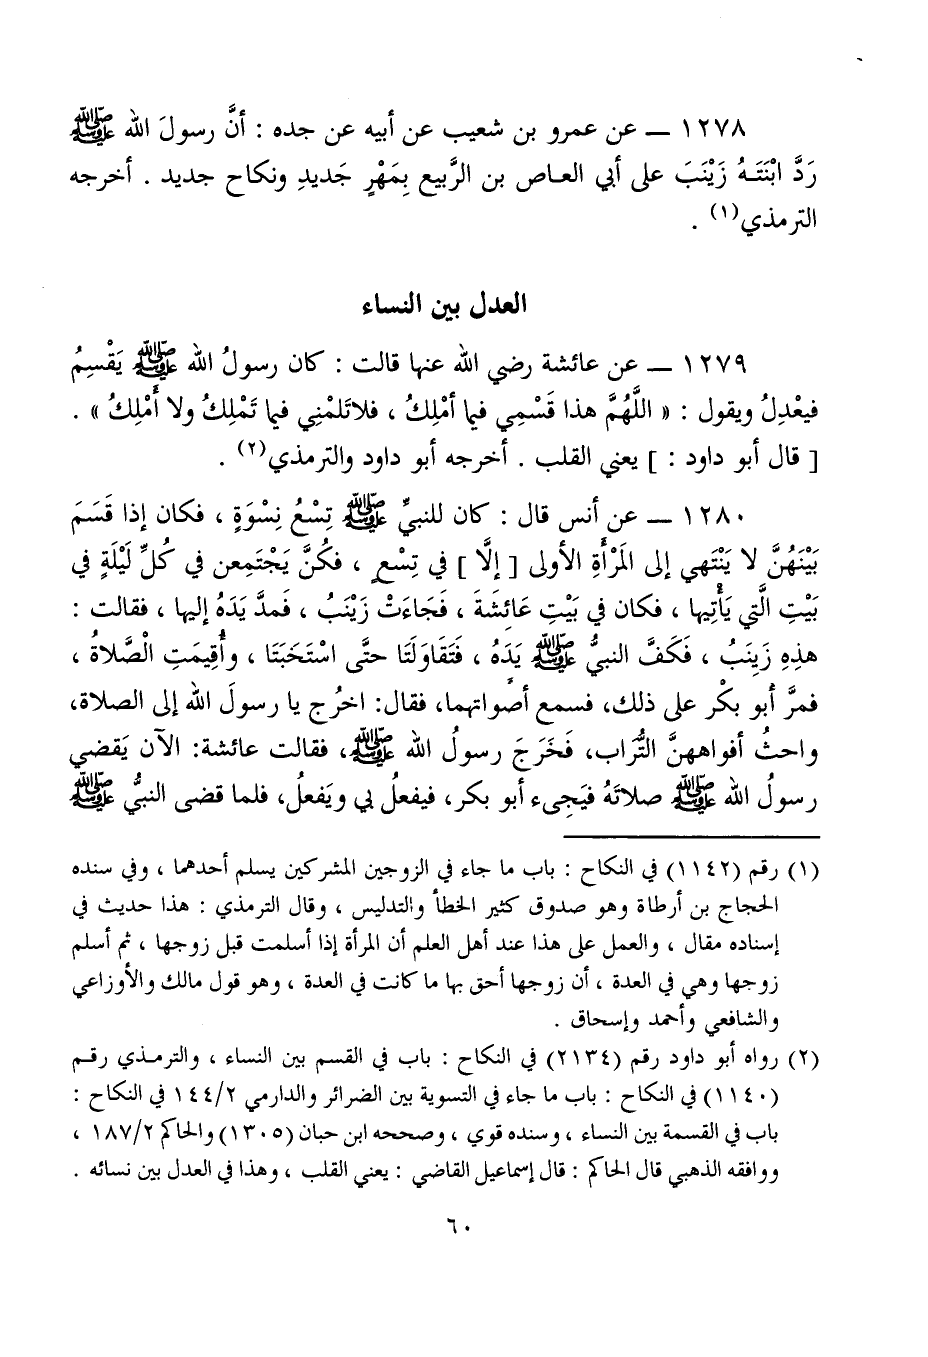 ١٢٧٨ — عن عمرو بن شعيب عن أبيه عن جده : أنَّ رسولَ الله ﷺ
رَدَّ ابْنَتَهُ زَيْنَبَ على أبي العاص بن الرَّبيع بِمَهْرٍ جَديدِ ونكاح جديد . أخرجه
الترمذي(١) .
العدل بين النساء
١٢٧٩ — عن عائشة رضي الله عنها قالت : كان رسولُ الله ﷺ يَقْسِمُ
فيعْدِلُ ويقول : « اللَّهُمَّ هذا قَسْمِي فيما أمْلِكُ ، فلاتَلمْنِي فيما تَمْلِكُ ولا أَمْلِكُ » .
[ قال أبو داود : ] يعني القلب . أخرجه أبو داود والترمذي(٢) .
١٢٨٠ — عن أنس قال : كان للنبيِّ ﷺ تِسْعُ نِسْوَةٍ ، فكان إذا قَسَمَ
بَيْنَهُنَّ لا يَنْتَهي إلى المَرْأَةِ الأولى [ إلَّا ] في تِسْعٍ ، فكُنَّ يَجْتَمِعن في كُلِّ لَيْلَةٍ في
بَيْتِ الَّتي يَأْتِيها ، فكان في بَيْتِ عَائِشَةَ ، فَجَاءَتْ زَيْنَبُ ، فَمدَّ يَدَهُ إليها ، فقالت :
هذِهِ زَينَبُ ، فَكَفَّ النبيُّ ﷺ يَدَهُ ، فَتَقَاوَلَتَا حتَّى اسْتَخَبَتَا ، وأُقِيمَتِ الْصَّلاةُ ،
فمرَّ أبو بكْر على ذلك، فسمع أصْواتهما، فقال: اخرُج يا رسولَ الله إلى الصلاة،
واحثُ أفواههنَّ التُّرَاب، فَخَرَجَ رسولُ الله ﷺ، فقالت عائشة: الآن يَقضي
رسولُ الله ﷺ صلاتَهُ فيَجِيء أبو بكر، فيفعلُ بي ويَفعلُ، فلما قضى النبيُّ ﷺ
(١) رقم (١١٤٢) في النكاح : باب ما جاء في الزوجين المشركين يسلم أحدهما ، وفي سنده
الحجاج بن أرطاة وهو صدوق كثير الخطأ والتدليس ، وقال الترمذي : هذا حديث في
إسناده مقال ، والعمل على هذا عند أهل العلم أن المرأة إذا أسلمت قبل زوجها ، ثم أسلم
زوجها وهي في العدة ، أن زوجها أحق بها ما كانت في العدة ، وهو قول مالك والأوزاعي
والشافعي وأحمد وإسحاق .
(٢) رواه أبو داود رقم (٢١٣٤) في النكاح : باب في القسم بين النساء ، والترمذي رقم
(١١٤٠) في النكاح : باب ما جاء في التسوية بين الضرائر والدارمي ١٤٤/٢ في النكاح :
باب في القسمة بين النساء ، وسنده قوي ، وصححه ابن حبان (١٣٠٥) والحاكم ١٨٧/٢ ،
ووافقه الذهبي قال الحاكم : قال إسماعيل القاضي : يعني القلب ، وهذا في العدل بين نسائه .
٦٠